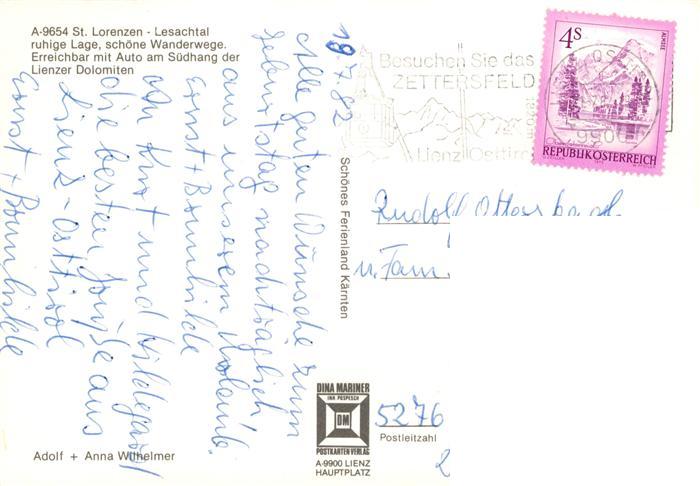 A-9654 St. Lorenzen - Lesachtal
ruhige Lage, schöne Wanderwege.
Erreichbar mit Auto am Südhang der
Lienzer Dolomiten
18.7.82
Alle guten Wünsche zum
Geburtstag nachträglich
aus unserem Urlaub.
Ernst + Brunhilde
An Kurt und Hildegard
die besten Grüße aus
Lienz - Osttirol
Ernst + Brunhilde
Adolf + Anna Wilhelmer
Schönes Ferienland Kärnten
DINA MARINER
INH POSPESCH
DM
POSTKARTENVERLAG
A-9900 LIENZ
HAUPTPLATZ
Besuchen Sie das
ZETTERSFELD
Lienz Osttirol
9900
4S
ALMSEE
REPUBLIK ÖSTERREICH
Rudolf
u. Fam.
5276
Postleitzahl
2